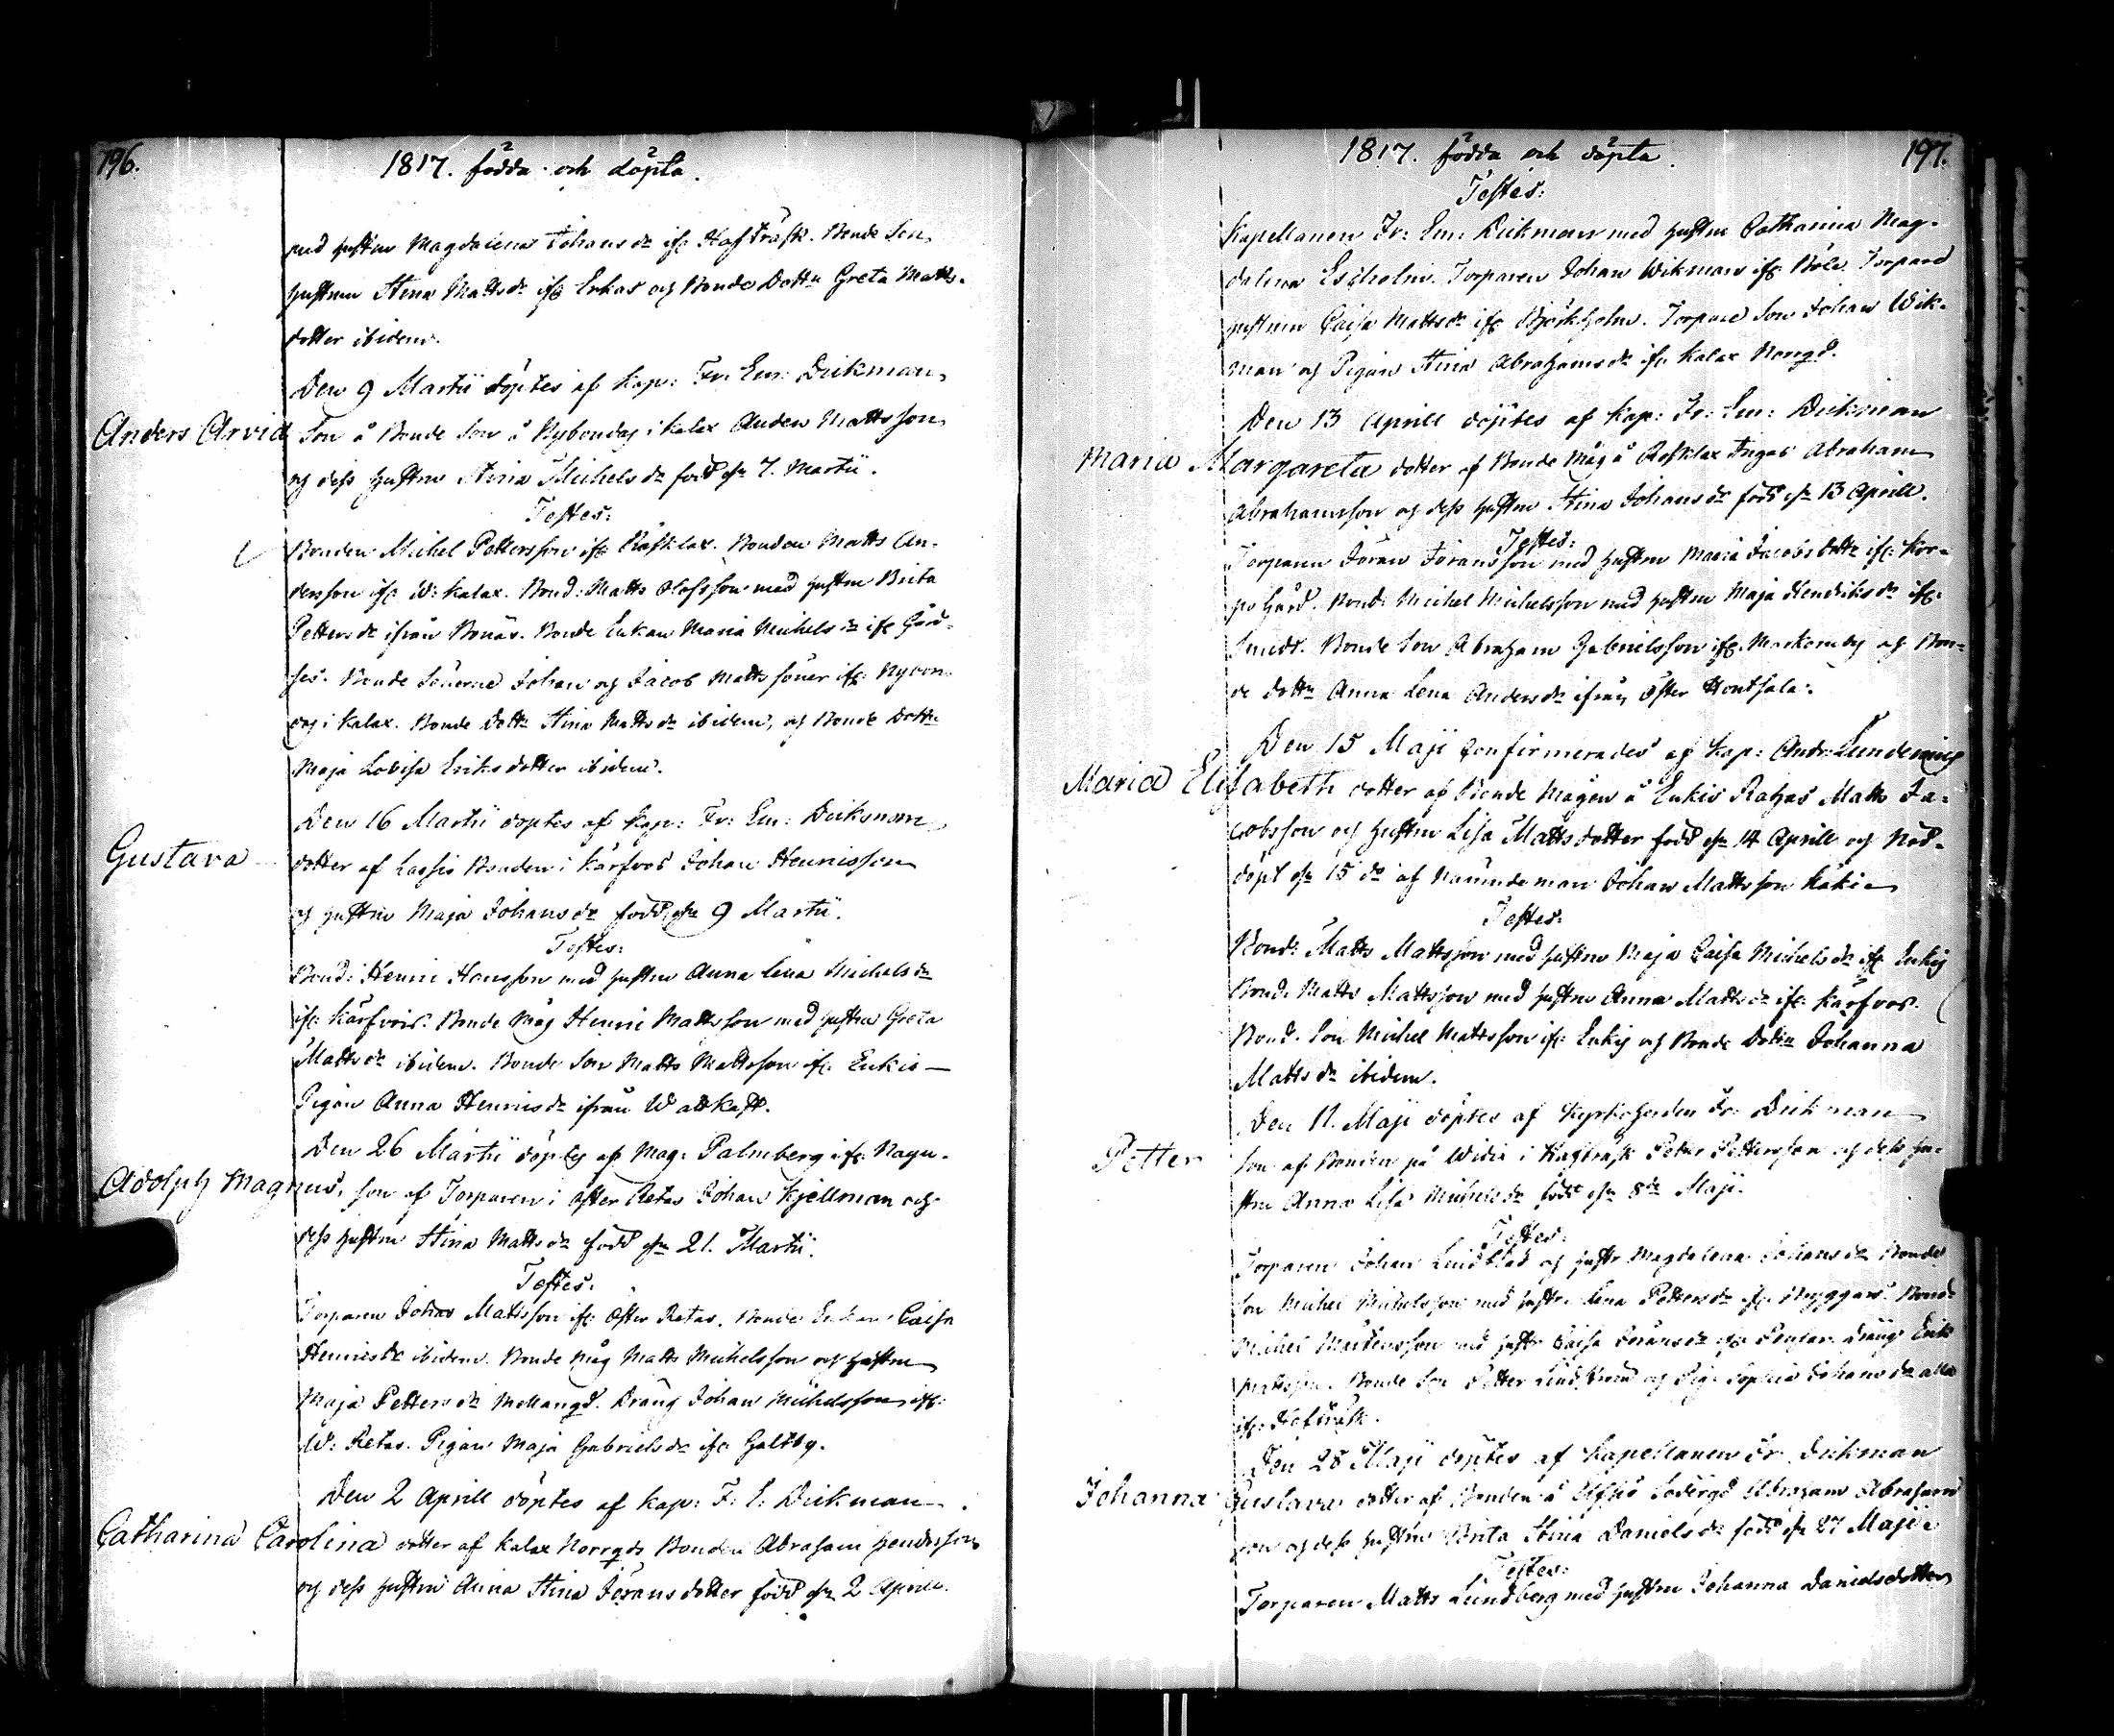 196.
1817. födda och döpta.
med hustru Magdalena Johans dr ifr. Hafträsk. Bonde Son
hustrun Stina Matts dr ifr Erkas og Bonde Dottn Greta Matts-
dotter ibidem.
Den 9 Martii döptes af Kap: Fr: Em: Dickman,
Anders Arvid Son å Bonde Son å Nybondas i Kalax Anders Mattsson
og dess hustru Stina Michels dr född dn 7. Martii.
Testes:
Bonden Michel Pettersson ifr Räfsklax. Bonden Matts An-
dersson ifr W: Kalax. Bond: Matts Olofsson med hustru Brita
Petters dr ifrån Bonäs. Bonde Enkan Maria Michels dr ifr Gård-
ses. Bonde Sönerne Johan og Jacob Matts söner ifr Nybon-
das i Kalax. Bonde Dottr Stina Matts dr ibidem, og Bonde Dottr
Maja Lovisa Eriks dotter ibidem.
Den 16 Martii döptes af Kap: Fr: Em: Dickman
Gustava dotter af Lassis Bonden i Kärfvos Johan Hennisson
og hustru Maja Johans dr född dn 9 Martii.
Testes:
Bond: Henric Hansson med hustru Anna Lena Michels dr
ifr. Kärfvos. Bonde Måg Henric Mattsson med hustru Greta
Matts dr ibidem. Bonde Son Matts Mattsson ifr. Enkis
Pigan Anna Hennis dr ifrån Wattkast.
Den 26 Martii döptes af Mag: Palmberg ifr. Nagu.
Adolph Magnus, son af Torparen i Öfter Retas Johan Kjellman og
dess hustru Stina Matts dr född dn 21. Martii.
Testes:
Torparen Johan Mattsson ifr Öfter Retas. Bonde Enkan Caisa
Hennis dr ibidem. Bonde Måg Matts Michelsson og hustru
Maja Petters dr Mellangd. Dräng Johan Michelsson ifr
W: Retas. Pigan Maja Gabriels dr ifr Galtby.
Den 2 Aprill döptes af Kap: F: E: Dickman.
Catharina Carolina dotter af Kalax Norrgds Bonden Abraham Hendersson
og dess hustru Anna Stina Jörans dotter född dn 2 Aprill.
1817. födda och döpta.
197.
Testes:
Kapellanen Fr: Em: Dickman med hustru Catharina Mag-
dalena Esholm. Torparen Johan Wikman ifr Böle. Torpare
hustrun Caisa Matts dr ifr Björkholm. Torpare Son Johan Wik-
man og Pigan Stina Abrahams dr ifr Kalax Norrgd.
Den 13 Aprill döptes af Kap: Fr: Em: Dickman
Maria Margareta dotter af Bonde Måg å Räfsklax Ingas Abraham
Abrahamsson og dess hustru Stina Johans dr född dn 13 Aprill.
Testes:
Torparen Jöran Jöransson med hustru Maria Jacobs dottr ifr Kor-
po Gård. Bond: Michel Michelsson med hustru Maja Hendriks dr ifr
Smeds. Bonde Son Abraham Gabrielsson ifr. Markomby og Bon-
de dottr Anna Lena Anders dr ifrån Öfter Hontsala.
Den 15 Maji Confirmerades af Kap: Andr: Lundening
Maria Elisabeth dotter af Bonde Mågen å Enkis Rahas Matts Ja-
cobsson og hustru Lisa Matts dotter född dn 14 Aprill og Nöd-
döpt dn 15 do af Nämnde man Johan Mattsson Käki
Testes:
Bond: Matts Mattsson med hustru Maja Caisa Michels dr ifr Enkis
Bond: Matts Mattsson med hustru Anna Matts dr ifr: Kärfvos.
Bond: Son Michel Mattsson ifr Enkis og Bonde Dottr Johanna
Matts dr ibidem.
Den 11. Maji döptes af Kyrkoherden Fr: Dickman
Petter son af Bonden på Widis i Hafträsk Petter Pettersson og dess hu-
stru Anna Lisa Michels dr född dn 8de Maji.
Testes:
Torparen Johan Lindblad og hustr Magdalena Johans dr Bonde
Son Michel Michelsson med hustr. Lena Petters dr ifr Byggars. Bond
Michel Mårtensson med hustr Caisa Jörans dr ifr Dräng Erik
Mattsson. Bonde Son Petter Lindstrom og Pig. Sophia Johans dr alla
ifr. Hafträsk.
Den 28 Maji döptes af Kapellanen Fr. Dickman
Johanna Gustava dotter af Bonden å Elfsjö Södergd Abraham Abrahams
son og dess hustru Brita Stina Daniels dr född dn 27 Maji
Testes:
Torparen Matts Lundberg med hustru Johanna Danielsdotter